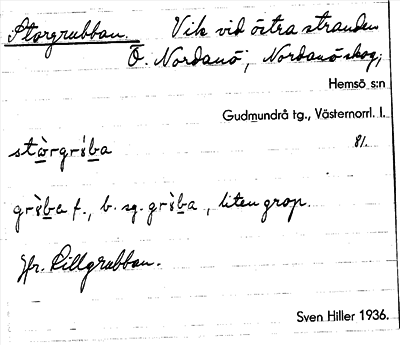 Storgrubban. Vik vid östra stranden
Ö. Nordanö; Nordanö skog;
Hemsö s:n
Gudmundrå tg., Västernorrl. l.
81.
f., b. sg. , liten grop.
Jfr. Lillgrubban.
Sven Hiller 1936.